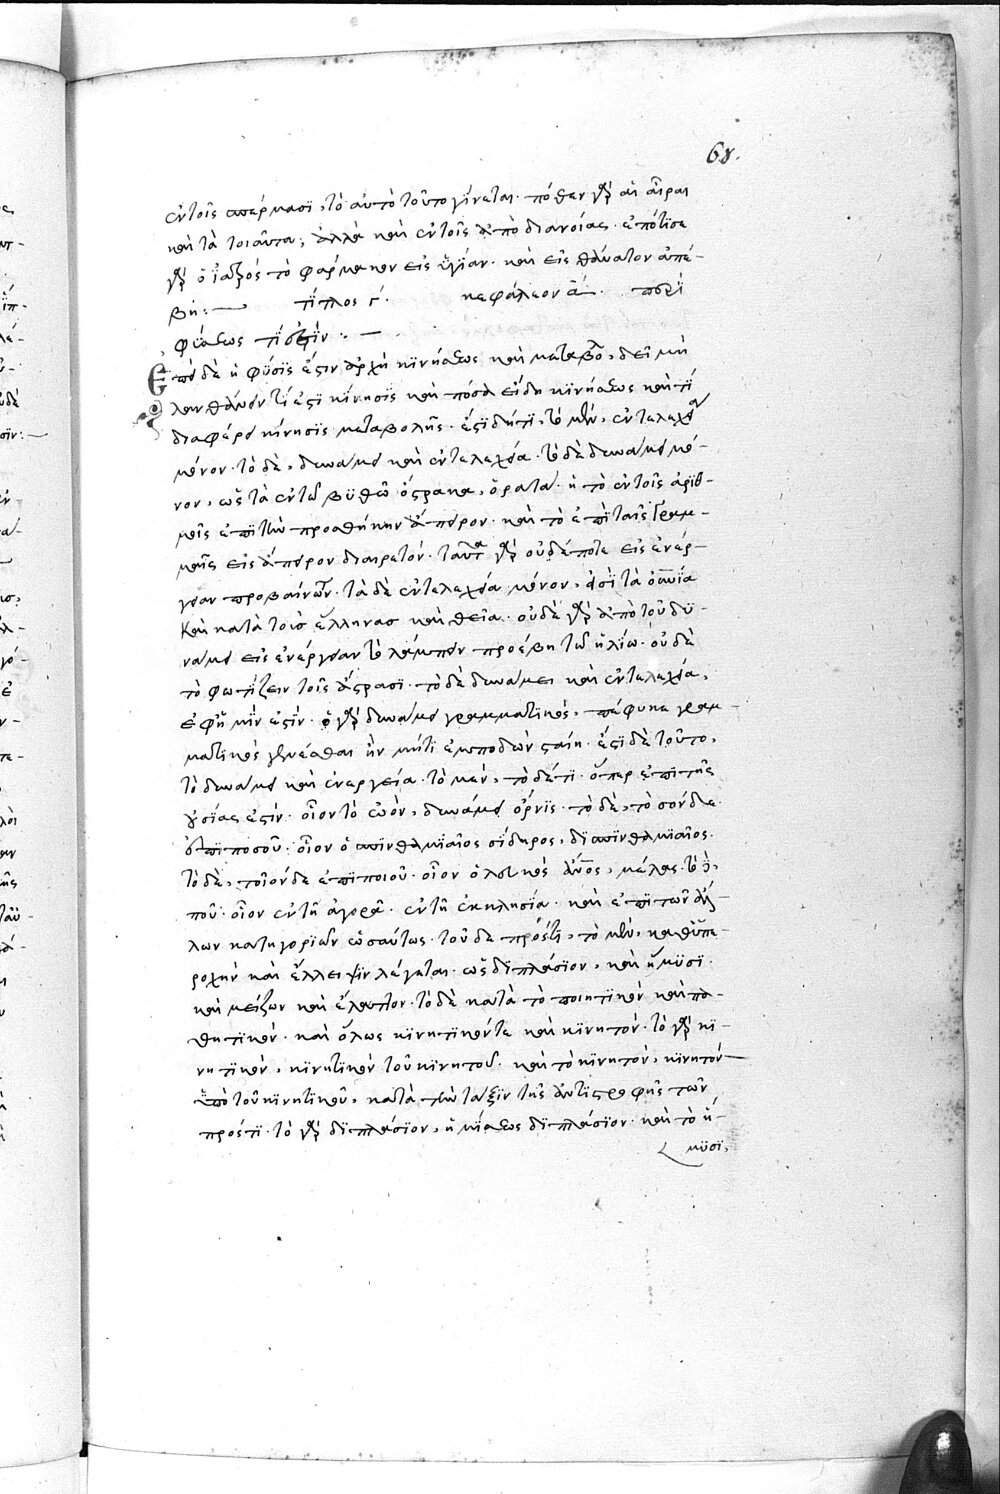 68.
ἐν τοῖς σπέρμασι, τὸ αὐτὸ τοῦτο γίνεται. πόθεν γὰρ αἱ αἶραι
καὶ τὰ τοιαῦτα; ἀλλὰ καὶ ἐν τοῖς ἀπὸ διανοίας. ἐπότισε
γὰρ ὁ ἰατρὸς τὸ φάρμακον εἰς ὑγίαν. καὶ εἰς θάνατον ἀπέ-
βη:— τίτλος γ. κεφάλεον α. περὶ
φύσεως τί ἐστιν:—
Ἐπεὶ δὲ ἡ φύσις ἐστὶν ἀρχὴ κινήσεως καὶ μεταβολῆς, δεῖ μὴ
λανθάνειν τί ἐστι κίνησις καὶ πόσα εἴδη κινήσεως καὶ τί
διαφέρει κίνησις μεταβολῆς. ἔστι δή τι, τὸ μὲν, ἐντελεχείᾳ
μόνον. τὸ δὲ, δυνάμει καὶ ἐντελεχεία. τὸ δὲ δυνάμει μό-
νον, ὡς τὰ ἐν τῶ βυθῶ ὄστρακα, ὁρατά. ἢ τὸ ἐν τοῖς ἀριθ-
μοῖς ἐπὶ τὴν προσθήκην ἄπειρον. καὶ τὸ ἐπὶ ταῖς γραμ-
μαῖς εἰς ἄπειρον διαιρετόν. ταῦτα γὰρ οὐδέποτε εἰς ἐνέρ-
γειαν προβαίνων. τὰ δὲ ἐντελεχεία μόνον, εἰσὶ τὰ οὐράνια
καὶ κατὰ τοὺς ἕλληνας καὶ θεῖα. οὐδὲ γὰρ ἀπὸ τοῦ δυ-
νάμει εἰς ἐνέργειαν τὸ λάμπειν προέβη τῶ ἡλίω. οὐδὲ
τὸ φωτίζειν τοῖς ἄστρασι. τὸ δὲ δυνάμει καὶ ἐντελεχεία,
ἐφ' ἡμῖν ἐστίν. ὁ γὰρ δυνάμει γραμματικὸς, πέφυκε γραμ-
ματικὸς γενέσθαι ἢν μήτι ἐμποδὼν σταίη. ἔστι δὲ τοῦτο,
τὸ δυνάμει καὶ ἐνεργεία. τὸ μὲν, τὸ δέ τι. ὅπερ ἐπὶ τῆς
οὐσίας ἐστίν. οἷον τὸ ὠὸν, δυνάμει ὄρνις. τὸ δὲ, τοσόνδε
ἐπὶ ποσοῦ. οἷον ὁ σπιθαμιαῖος σίδηρος, δισπιθαμιαῖος.
τὸ δὲ, τοιόνδε ἐπὶ ποιοῦ. οἷον ὁ λευκὸς ἄνος, μέλας. τὸ δὲ,
ποῦ. οἷον ἐν τῇ ἀγορᾶ. ἐν τῇ ἐκκλησία. καὶ ἐπὶ τῶν ἄλ-
λων κατηγοριῶν ὡσαύτως. τοῦ δὲ πρόστι, τὸ μὲν, καθ' ὑπε-
ροχὴν καὶ ἔλλειψιν λέγεται. ὡς διπλάσιον, καὶ ἥμυσι.
καὶ μεῖζον καὶ ἔλαττον. τὸ δὲ κατὰ τὸ ποιητικὸν καὶ πα-
θητικόν. καὶ ὅλως κινητικόντε καὶ κινητόν. τὸ γὰρ κι-
νητικὸν, κινητικὸν τοῦ κινητοῦ. καὶ τὸ κινητὸν, κινητὸν
ὑπὸ τοῦ κινητικοῦ, κατὰ τὴν τάξιν τῆς ἀντιστροφῆς τῶν
πρόστι. τὸ γὰρ διπλάσιον, ἡμίσεως διπλάσιον. καὶ τὸ ἥ-
μυσι,